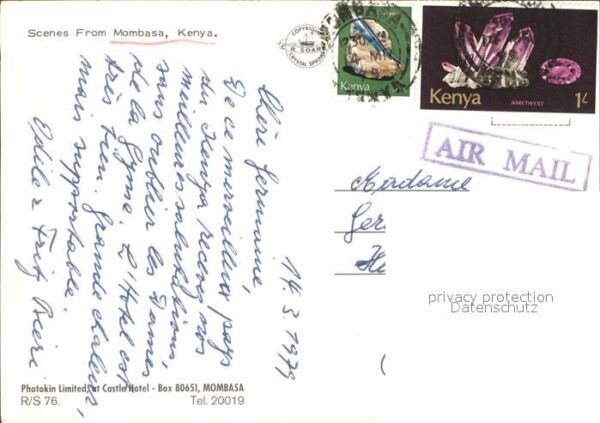 Scenes From Mombasa, Kenya.
COPYRIGHT
R. SOAR
CRYSTAL SPRINGS
Kenya
Kenya
AMETHYST
1/-
AIR MAIL
14.3.1979
Chère Germaine,
De ce merveilleux pays
du Kenya recevez nos
meilleures salutations
sans oublier les Dames
de la Gyme. L'Hotel est
très bien. Grande chaleur,
mais supportable.
Odile & Fritz Beeri
Madame
Ger
He
privacy protection
Datenschutz
Photokin Limited, at Castle Hotel - Box 80651, MOMBASA
R/S 76. Tel. 20019